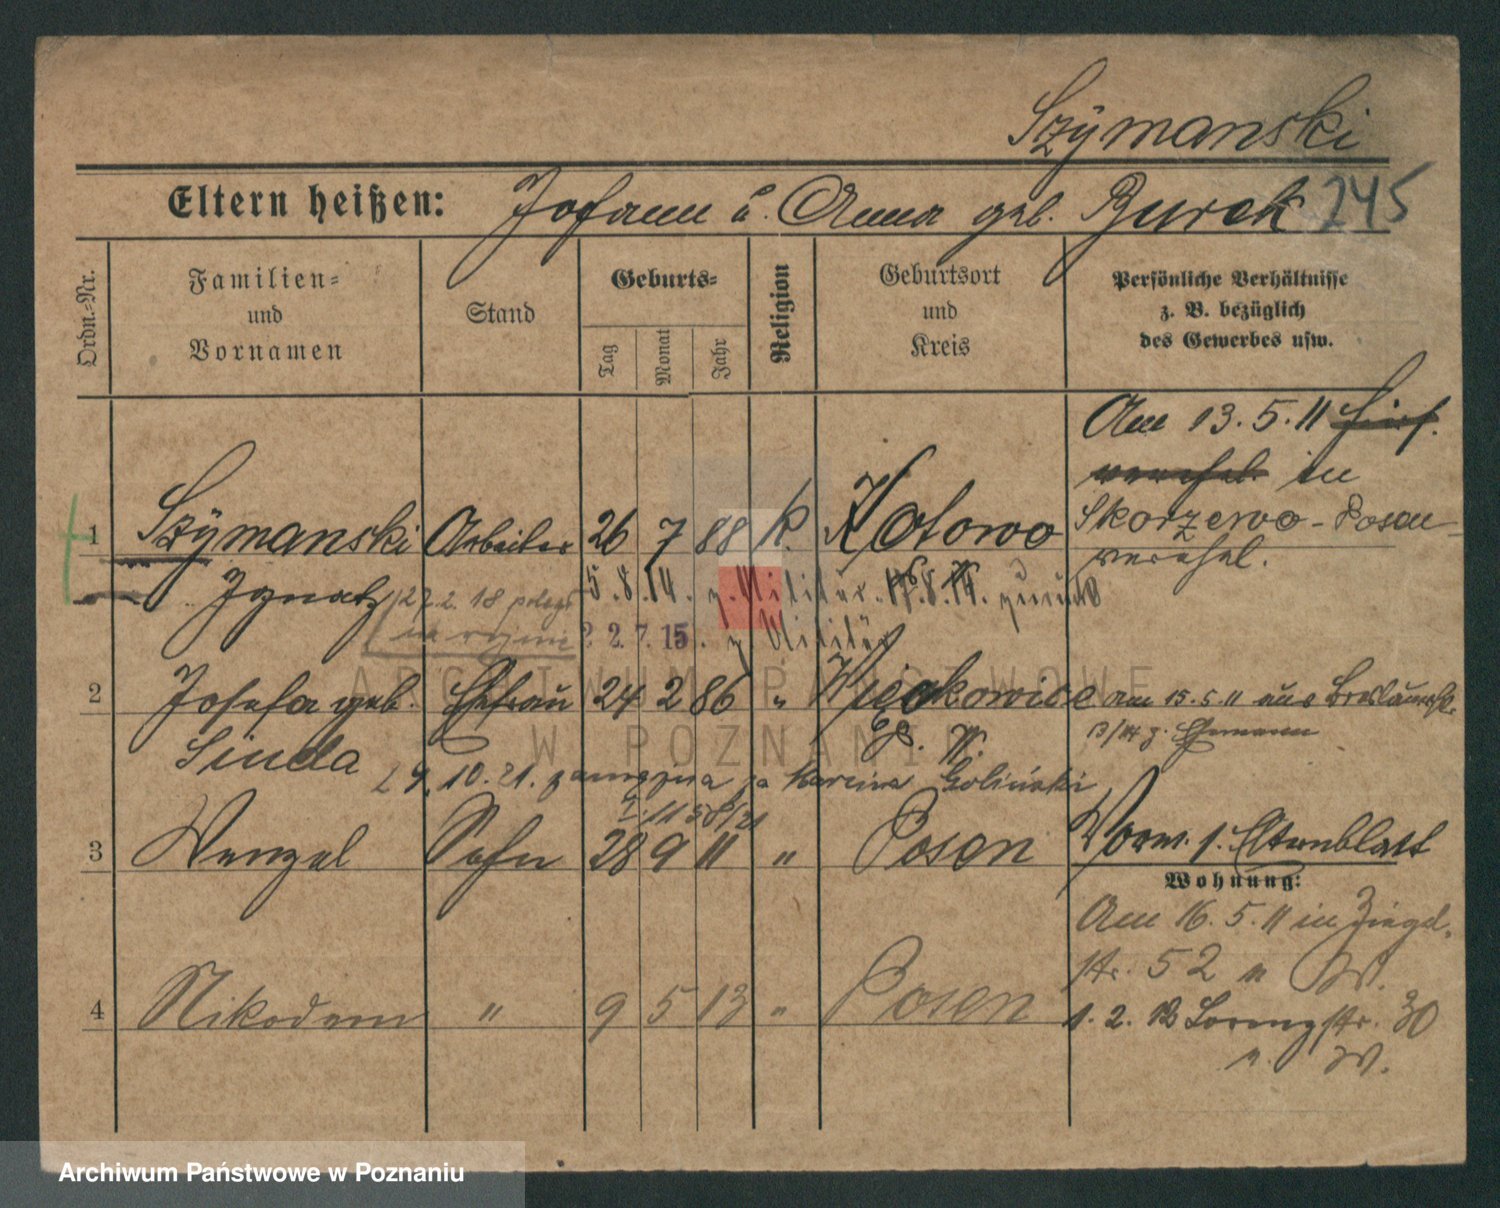 Szÿmanski
Eltern heißen: Johann u. Anna geb. Burek 245
Ordn.=Nr.
Familien=
und
Vornamen
Stand
Geburts=
Tag
Monat
Jahr
Religion
Geburtsort
und
Kreis
Persönliche Verhältnisse
z. B. bezüglich
des Gewerbes usw.
Am 13. 5. 11
in
Skorzewo - Posen
verehel.
1 Szÿmanski Arbeiter 26 7 88 k. Kotowo
Ignatz
27.2.18 poległ
na wojnie
5.8.14. z. Militär. 8.14. zurück
2.7.15. z Militär
2 Josefa geb. Ehefrau 24 2 86 "
P. W.
Sinda
am 15.5.11 aus
13/14 z. Ehemann
29.10.21. zamężna za Marcina Goliński
3 Wenzel Sohn 28 9 11 " Posen
Vorm. s. Elternblatt
Wohnung:
Am 16. 5. 11 in Ziegel-
str. 52 W.
4 Nikodem " 9 5 13 " Posen
1. 2. 12 Lorenzstr. 30
W.
ARCHIWUM PAŃSTWOWE
W POZNANIU
Archiwum Państwowe w Poznaniu